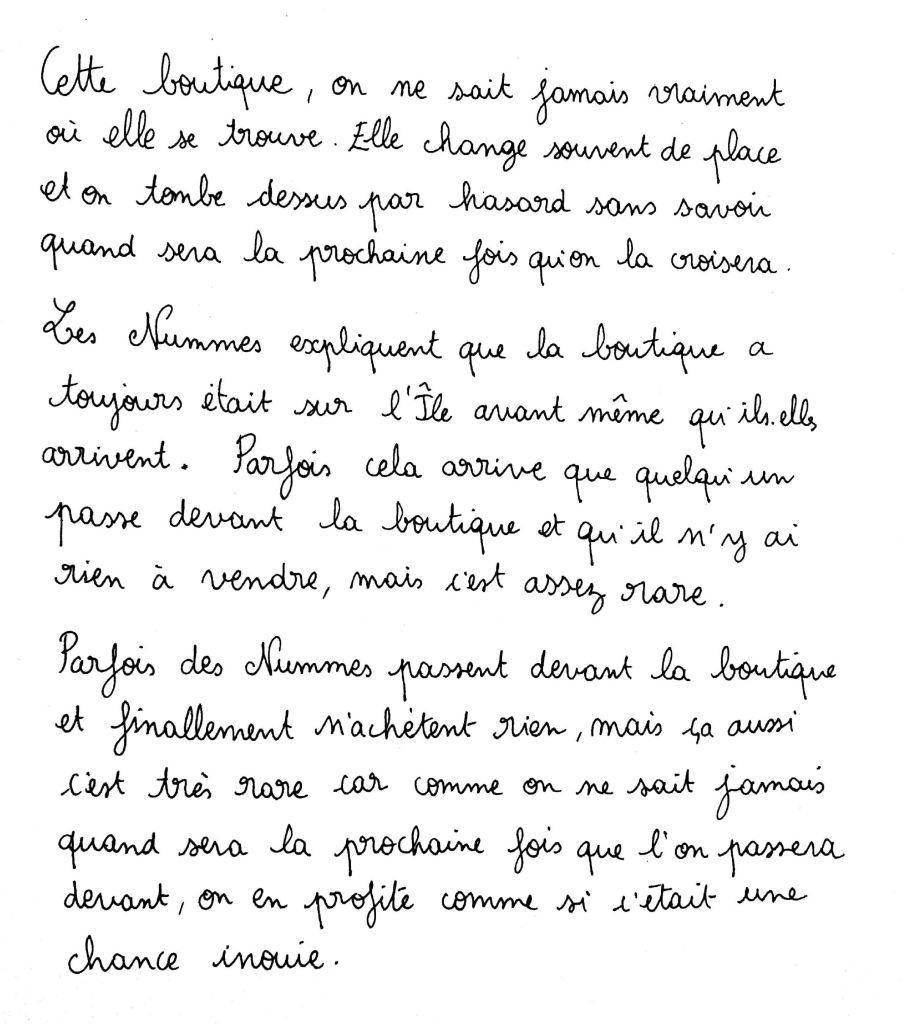 Cette boutique, on ne sait jamais vraiment
où elle se trouve. Elle change souvent de place
et on tombe dessus par hasard sans savoir
quand sera la prochaine fois qu'on la croisera.
Les Nummes expliquent que la boutique a
toujours était sur l'Île avant même qu'ils.elles
arrivent. Parfois cela arrive que quelqu'un
passe devant la boutique et qu'il n'y ai
rien à vendre, mais c'est assez rare.
Parfois des Nummes passent devant la boutique
et finallement n'achètent rien, mais ça aussi
c'est très rare car comme on ne sait jamais
quand sera la prochaine fois que l'on passera
devant, on en profite comme si c'était une
chance inouie.